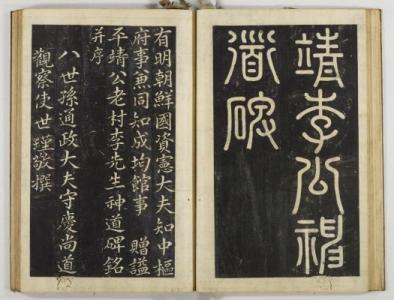 靖李公神
道碑
有明朝鮮國資憲大夫知中樞
府事兼同知成均館事 贈諡
平靖公老村李先生神道碑銘
并序
八世孫通政大夫守慶尚道
觀察使世瑾敬撰